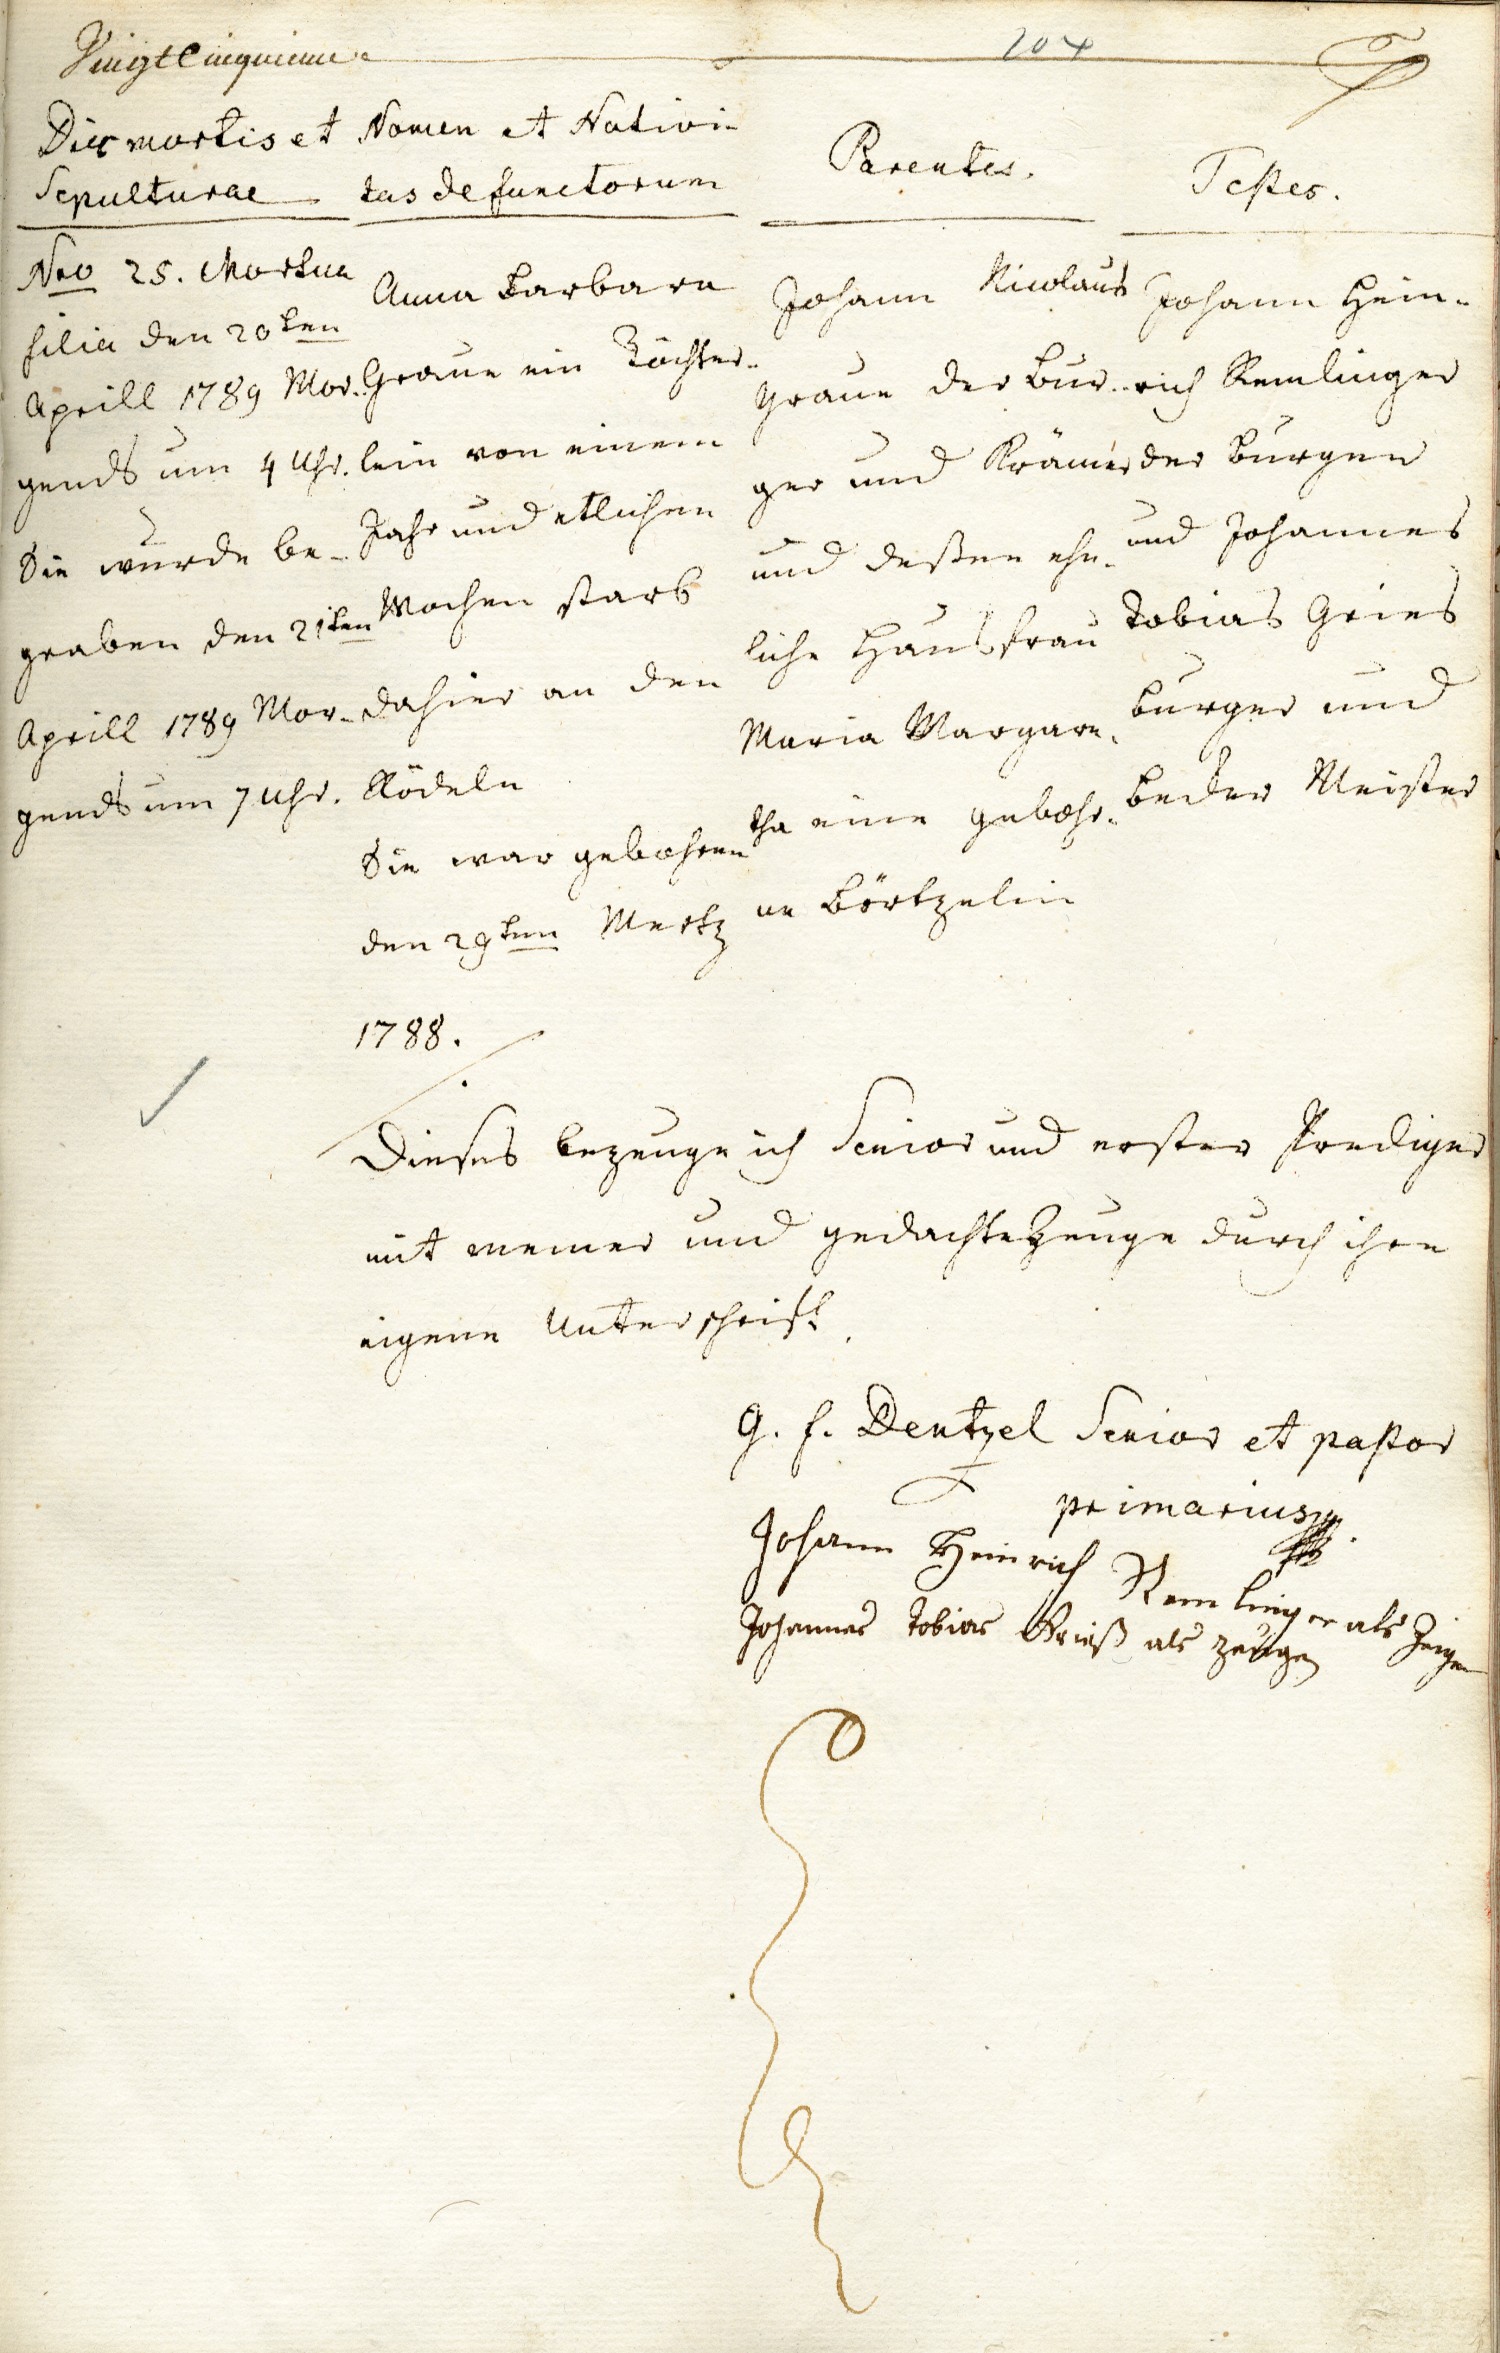 Vingtcinquieme
104
Dies mortis et
Sepulturae
Nro 25. Mortua
filia den 20ten
Aprill 1789 Mor-
gends um 4 Uhr.
Sie wurde be-
graben den 21ten
Aprill 1789 Mor-
gends um 7 Uhr.
Nomen et Nativi-
tas defunctorum
Anna Barbara
Graue ein Töchter-
lein von einem
Jahr und etlichen
Wochen starb
dahier an den
Rödeln
Sie war gebohren
den 29ten Mertz
1788.
Parentes.
Johann Nicolaus
Graue der Bur-
ger und Krämer
und deßen ehe-
liche Hausfrau
Maria Margare-
tha eine gebohr-
ne Börtzelin
Testes.
Johann Hein-
rich Remlinger
der Burger
und Johannes
Tobias Gries
Burger und
Becker Meister
Dieses bezeuge ich Senior und erster Prediger
mit meiner und gedachte Zeuge durch ihre
eigene Unterschrift
G. F. Dentzel Senior et pastor
primarius
Johann Heinrich Remlinger als Zeigen
Johannes Tobias Grieß als zeugen